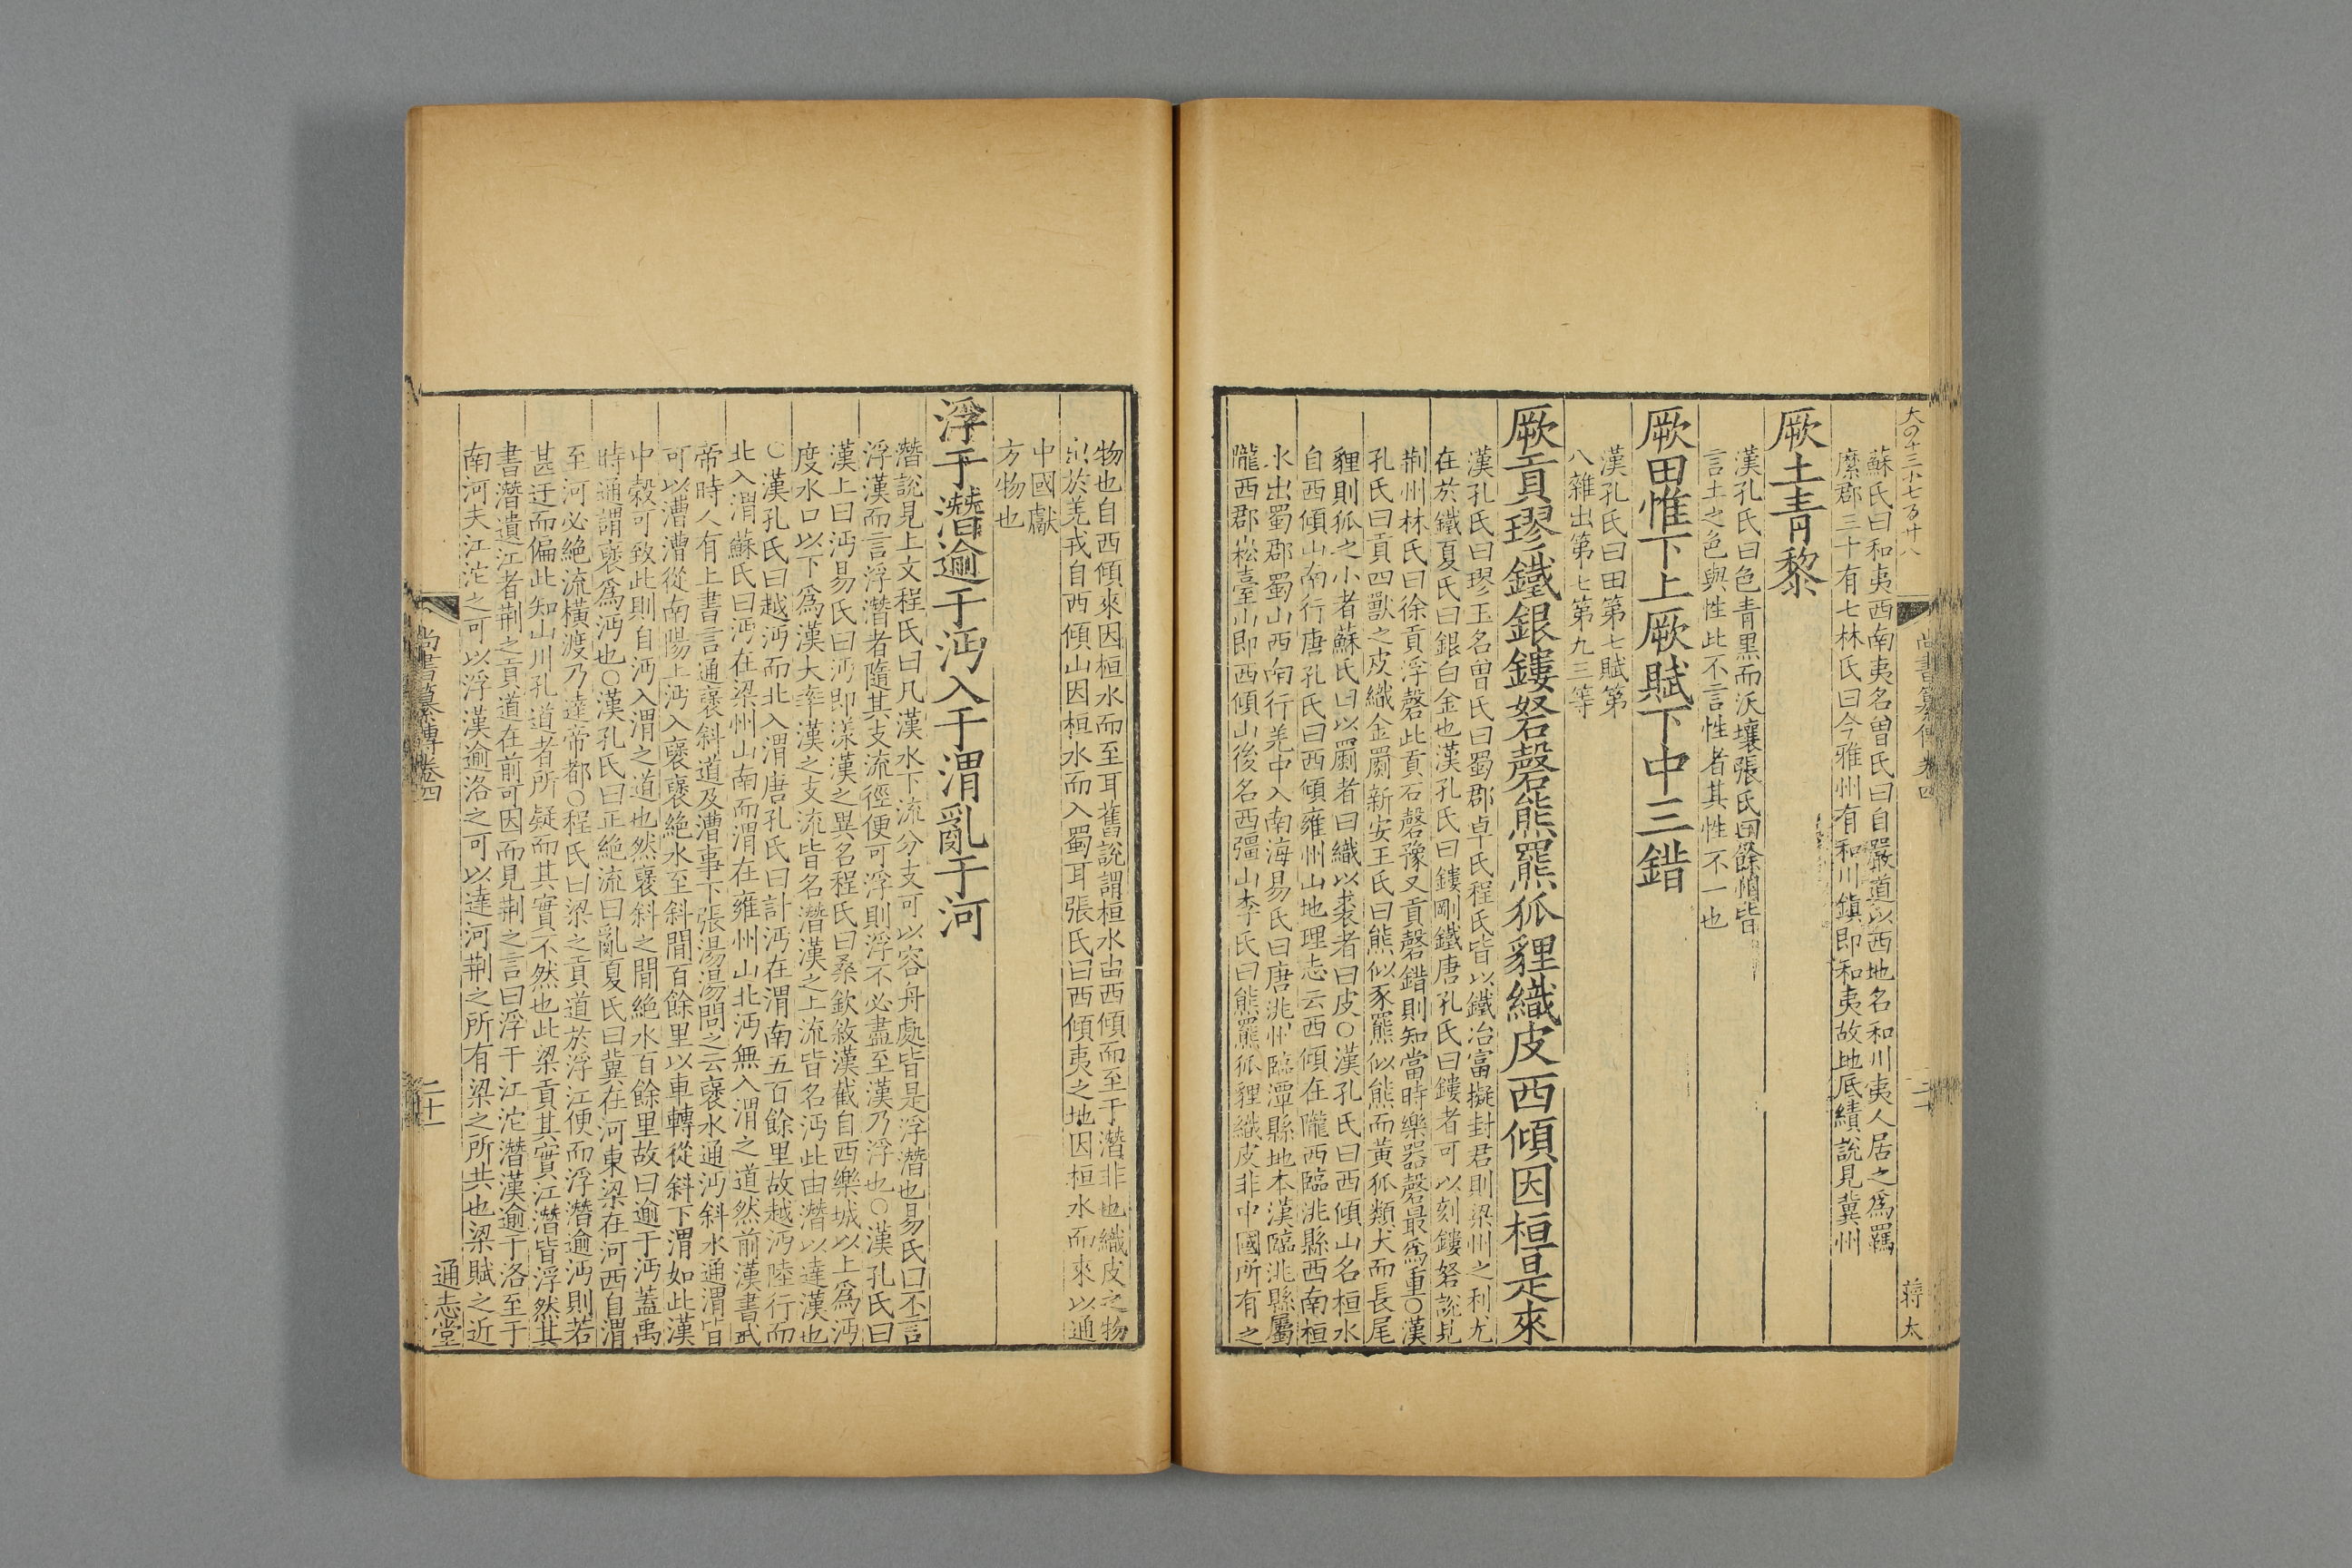 尚書纂傳卷四
蔣太
蘇氏曰和夷西南夷名曾氏曰自嚴道以西地名和川夷人居之爲羈
縻郡三十有七林氏曰今雅州有和川鎭即和夷故地厎績說見冀州
厥土青黎
漢孔氏曰色青黑而沃壤張氏曰餘怕皆
言土之色與性此不言性者其性不一也
厥田惟下上厥賦下中三錯
漢孔氏曰田第七賦第
八雜出第七第九三等
厥貢璆鐵銀鏤砮磬熊羆狐貍織皮西傾因桓是來
漢孔氏曰璆玉名曾氏曰蜀郡卓氏程氏皆以鐵冶富擬封君則梁州之利尤
在於鐵夏氏曰銀白金也漢孔氏曰鏤剛鐵唐孔氏曰鏤者可以刻鏤砮說見
荆州林氏曰徐貢浮磬此貢石磬豫又貢磬錯則知當時樂器磬最爲重○漢
孔氏曰貢四獸之皮織金罽新安王氏曰熊似豕羆似熊而黃狐類犬而長尾
貍則狐之小者蘇氏曰以罽者曰織以裘者曰皮○漢孔氏曰西傾山名桓水
自西傾山南行唐孔氏曰西傾雍州山地理志云西傾在隴西臨洮縣西南桓
水出蜀郡蜀山西南行羌中入南海易氏曰唐洮州臨潭縣地本漢臨洮縣屬
隴西郡崧臺山即西傾山後名西彊山李氏曰熊羆狐貍織皮非中國所有之
物也自西傾來因桓水而至耳舊說謂桓水出西傾而至于潛非也織皮之物
織於羌戎自西傾山因桓水而入蜀耳張氏曰西傾夷之地因桓水而來以通
中國獻
方物也
浮于潛逾于沔入于渭亂于河
潛說見上文程氏曰凡漢水下流分支可以容舟處皆是浮潛也易氏曰不言
浮漢而言浮潛者隨其支流徑便可浮則浮不必盡至漢乃浮也○漢孔氏曰
漢上曰沔易氏曰沔即漾漢之異名程氏曰桑欽敘漢截自西樂城以上爲沔
度水口以下爲漢大率漢之支流皆名潛漢之上流皆名沔此由潛以達漢也
○漢孔氏曰越沔而北入渭唐孔氏曰計沔在渭南五百餘里故越沔陸行而
北入渭蘇氏曰沔在梁州山南而渭在雍州山北沔無入渭之道然前漢書武
帝時人有上書言通褒斜道及漕事下張湯湯問之云褒水通沔斜水通渭皆
可以漕漕從南陽上沔入褒褒絕水至斜間百餘里以車轉從斜下渭如此漢
中穀可致此則自沔入渭之道也然褒斜之間絕水百餘里故曰逾于沔蓋禹
時通謂褒爲沔也○漢孔氏曰正絕流曰亂夏氏曰冀在河東梁在河西自渭
至河必絕流橫渡乃達帝都○程氏曰梁之貢道於浮江便而浮潛逾沔則若
甚迂而偏此知山川孔道者所疑而其實不然也此梁貢其實江潛皆浮然其
書潛遺江者荆之貢道在前可因而見荆之言曰浮于江沱潛漢逾于洛至于
南河夫江沱之可以浮漢逾洛之可以達河荆之所有梁之所共也梁賦之近
尚書纂傳卷四
二十一
通志堂